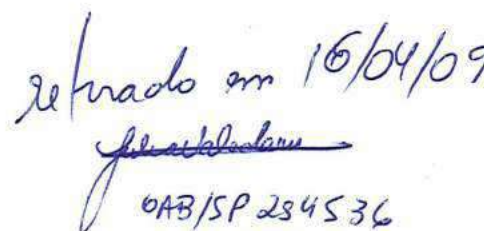 retirado em 16/04/09
OAB/SP 234536